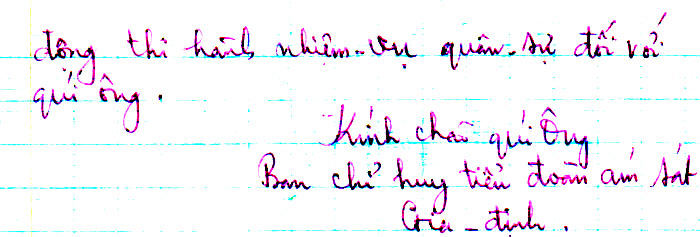 động thi hành nhiệm-vụ quân-sự đối với
quí ông.
Kính chào quí Ông
Ban chỉ huy tiểu đoàn ám sát
Gia-định.